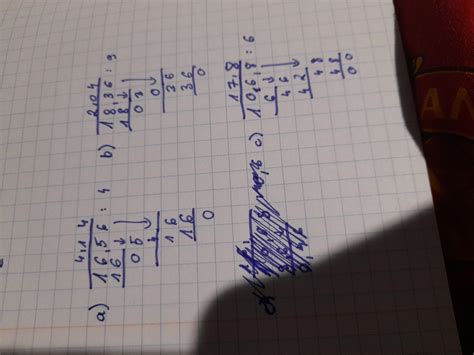 a)
4,14
16,56 : 4
16
05
4
16
16
0
b)
2,04
18,36 : 9
18
03
0
36
36
0
c)
17,8
10,6,8 : 6
6
46
42
48
48
00